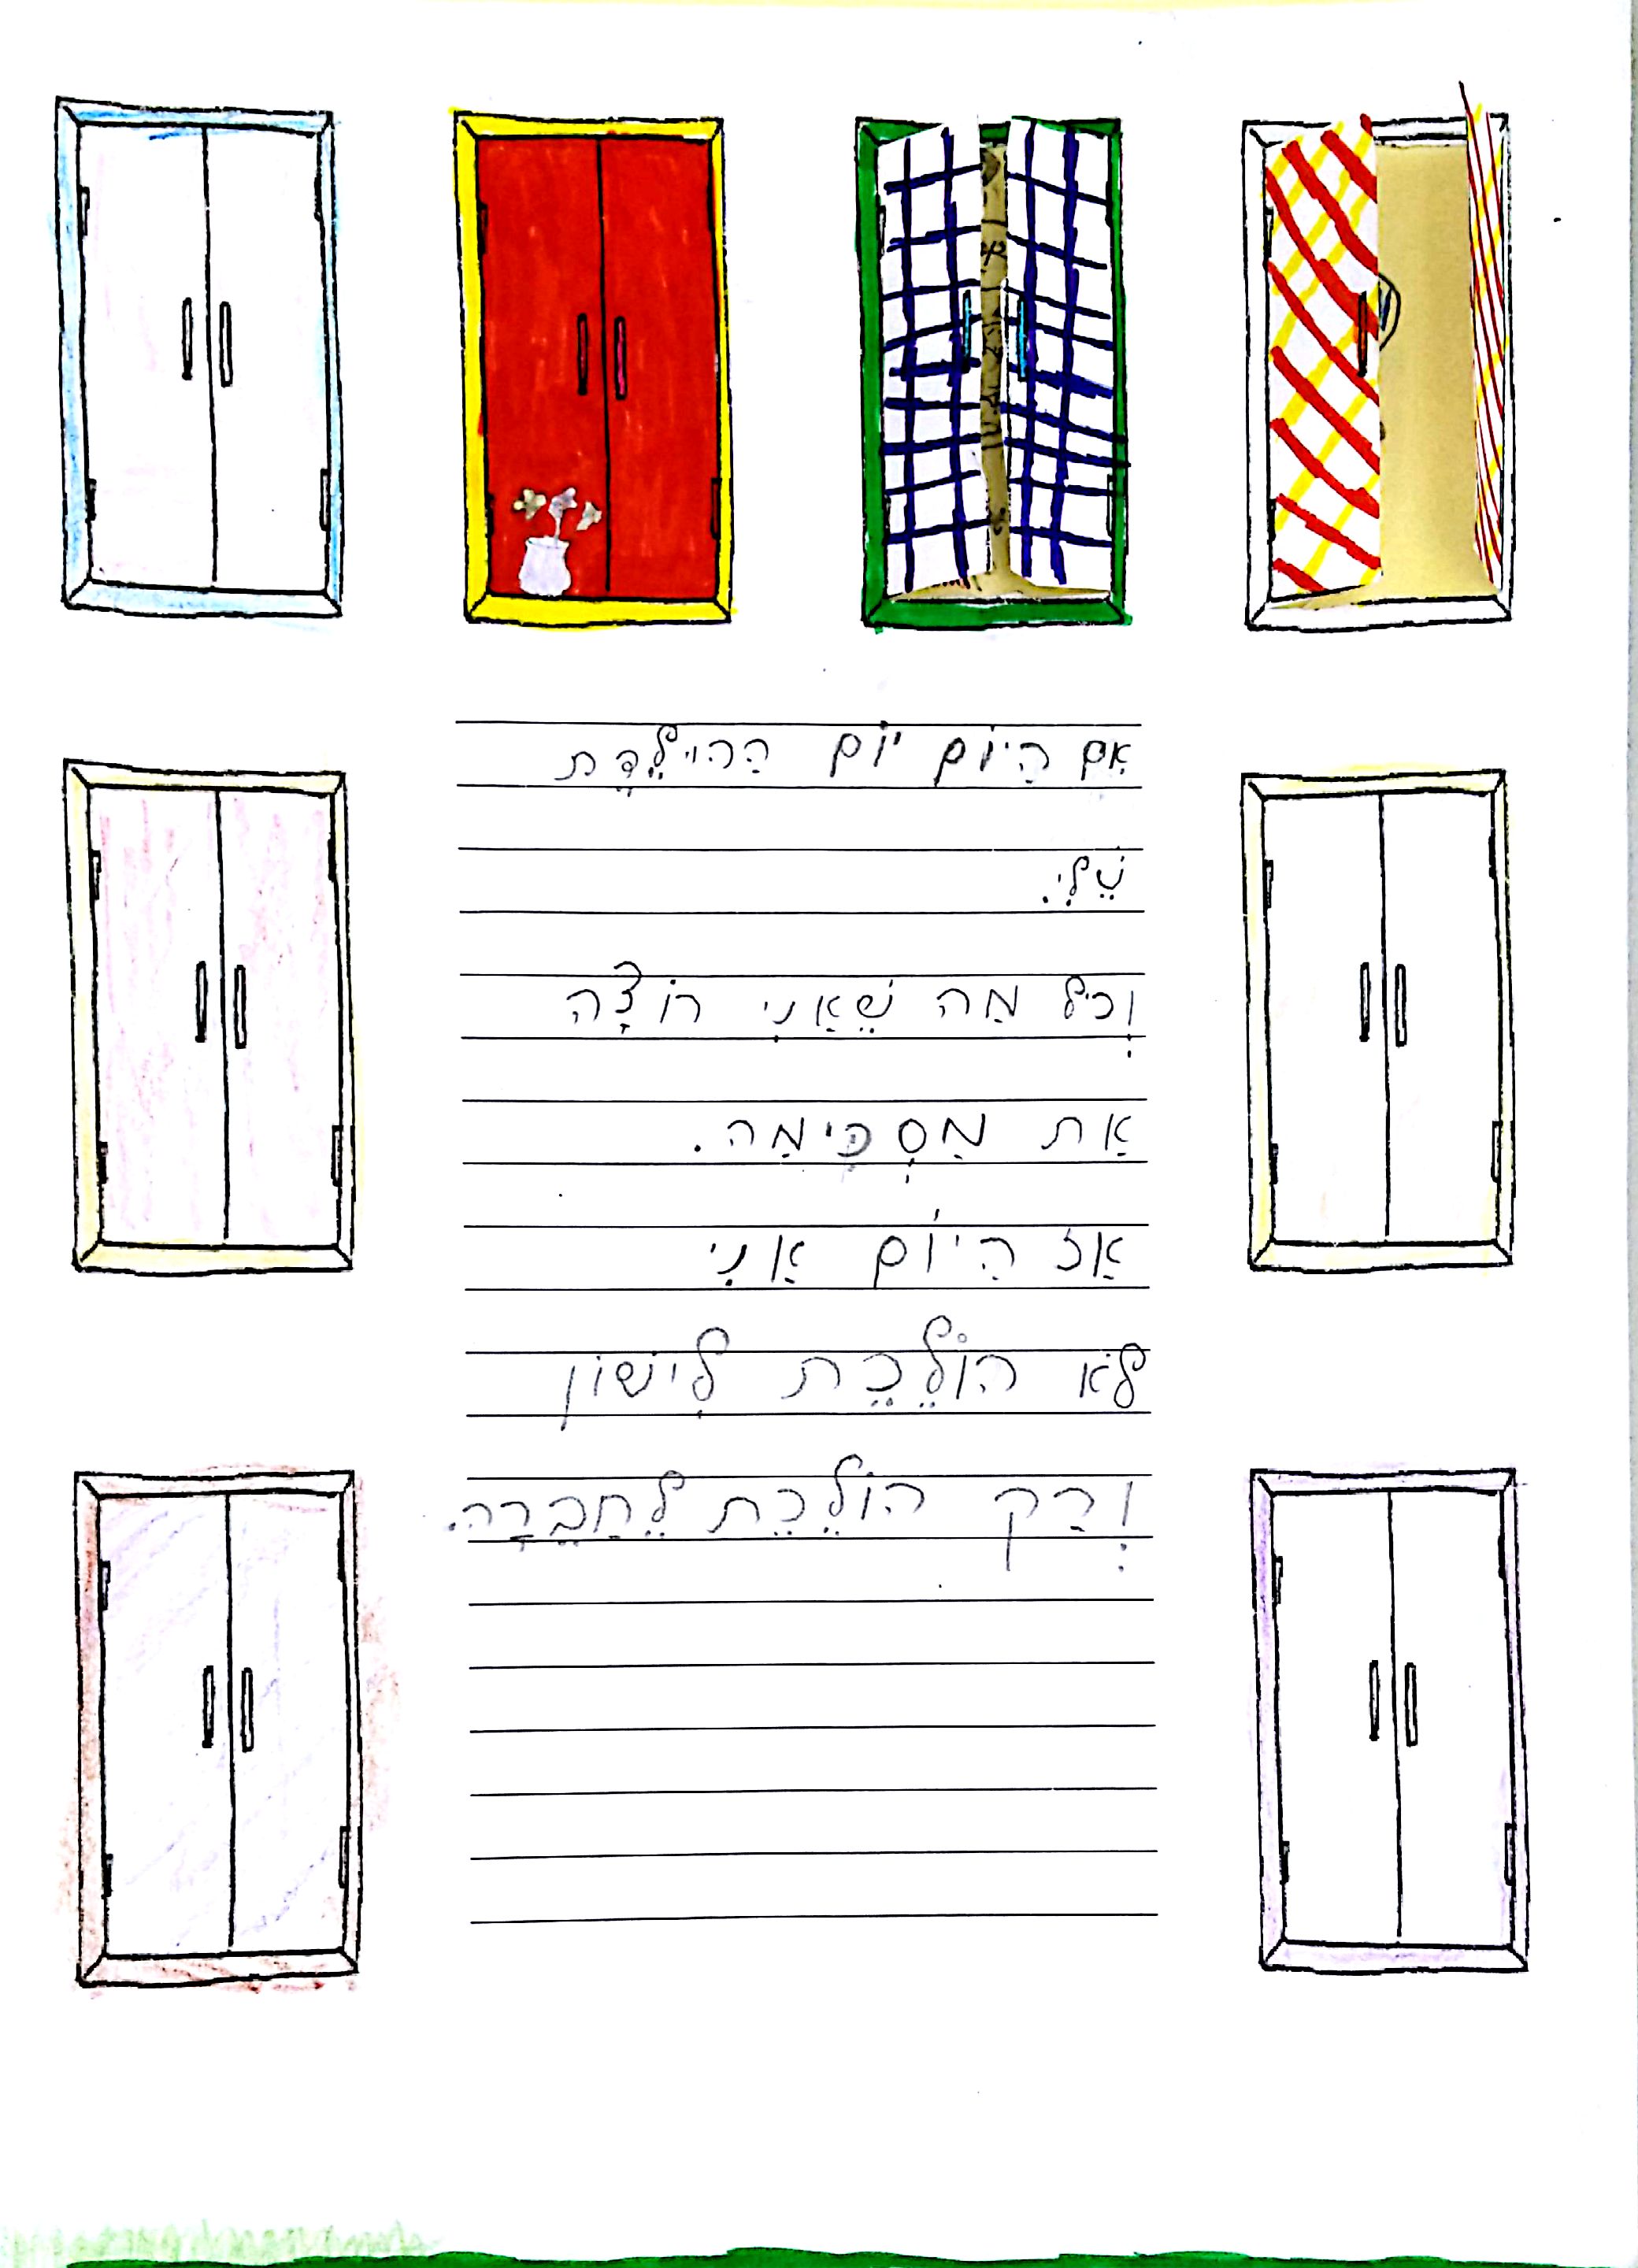 אִם הַיוֹם יוֹם הַהוילֶדֶת
שֶׁלִי.
וְכיל מַה שֶׁאַנִי רוֹצָה
אַת מַסְכִּימָה.
אַז הַיוֹם אַנִי
לֹא הוֹלֶכֶת לִישׁוֹן
וְרַק הוֹלֶכֶת לֶחַבֶרָה.